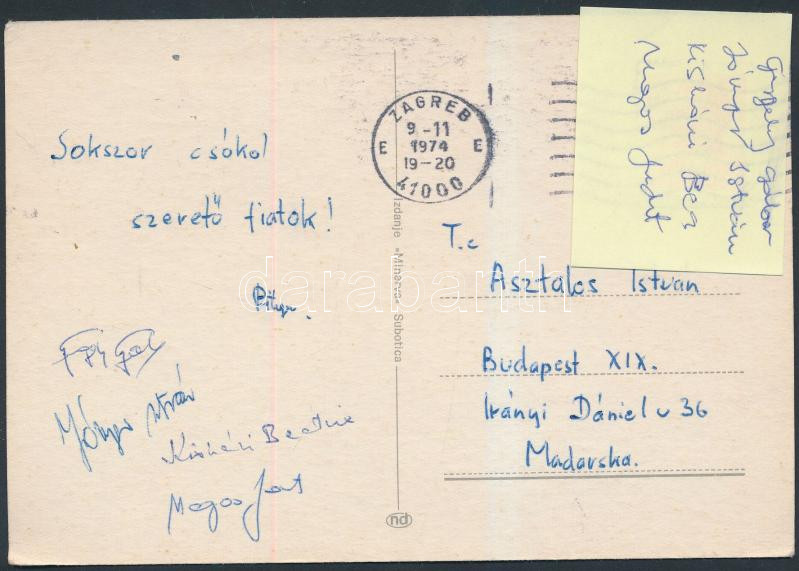 Sokszor csókol
szerető fiatok!
Pityu.
Jónyer István
Kisházi Beatrix
Magos Judit
Izdanje »Minerva« Subotica
nd
ZAGREB
9.-11
1974
E E
19-20
41000
T.c
Asztalos István
Budapest XIX.
Irányi Dániel u 36
Madarska.
Gergely Gábor
Jónyer István
Kisházi Bea
Magos Judit
darabanth